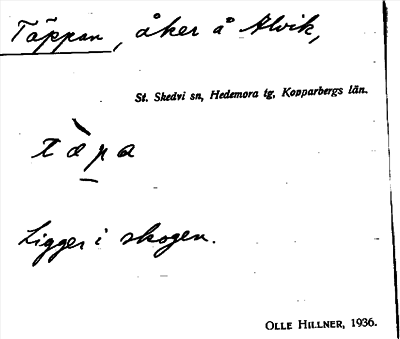 Täppan, åker å Alvik,
St. Skedvi sn, Hedemora tg, Kopparbergs län.
tæ̀p̠a
Ligger i skogen.
OLLE HILLNER, 1936.